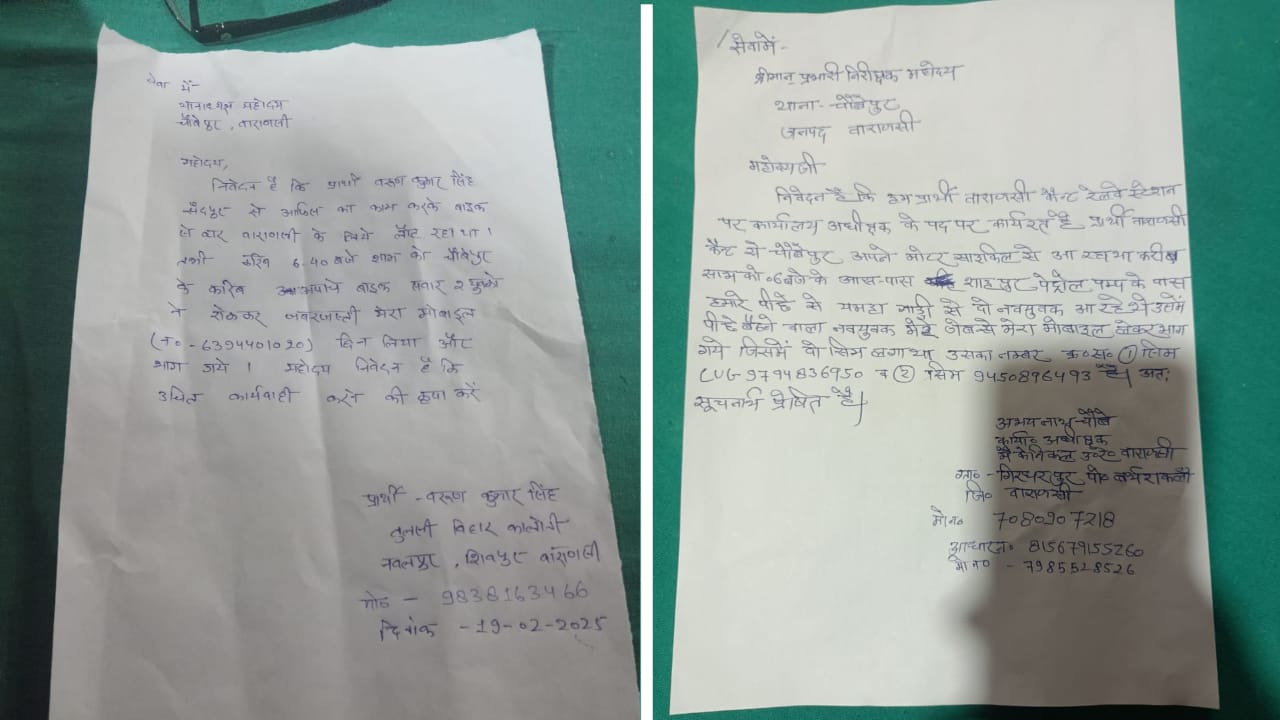 सेवा में-
थानाध्यक्ष महोदय
चौबेपुर, वाराणसी
महोदय,
निवेदन है कि प्रार्थी वरूण कुमार सिंह
सैदपुर से आफिस का काम करके बाइक
से वाराणसी के लिये लौट रहा था।
तभी करिब 6.40 बजे शाम को चौबेपुर
के करिब अपाचे बाइक सवार 2
ने रोककर जबरजस्ती मेरा मोबाइल
(न०- 6394401020) छिन लिया और
भाग गये। महोदय निवेदन है कि
उचित कार्यवाही करने की कृपा करें
प्रार्थी - वरूण कुमार सिंह
तुलसी विहार कालोनी
नवलपुर, शिवपुर वाराणसी
मो० - 9838163466
दिनांक - 19-02-2025
सेवामें-
श्रीमान् प्रभारी निरीक्षक महोदय
थाना- चौबेपुर
जनपद वाराणसी
महोदयजी
निवेदन है कि हम प्रार्थी वाराणसी कैन्ट रेलवे स्टेशन
पर कार्यालय अधीक्षक के पद पर कार्यरत है प्रार्थी वाराणसी
कैन्ट से चौबेपुर अपने मोटर साइकिल से आ रहा था करीब
साम को 6 बजे के आस-पास शाहपुर पेट्रोल पम्प के पास
हमारे पीछे से यमहा गाड़ी से दो नवयुवक आ रहे थे उसमें
पीछे बैठने वाला नवयुवक मेरे जेब से मेरा मोबाइल लेकर भाग
गये जिसमें दो सिम लगा था उसका नम्बर क्र०स० ① सिम
CUG 9794836950 व ② सिम 9450896493 है। अत:
सूचनार्थ प्रेषित है।
अभय नाथ चौबे
कार्या० अधीक्षक
मैकेनिकल उ०रे० वाराणसी
ग्रा०- गिरधरपुर पो०
जि० वाराणसी
मो०न० 7080907218
आधारन० 815679155260
मो न० - 7985528526